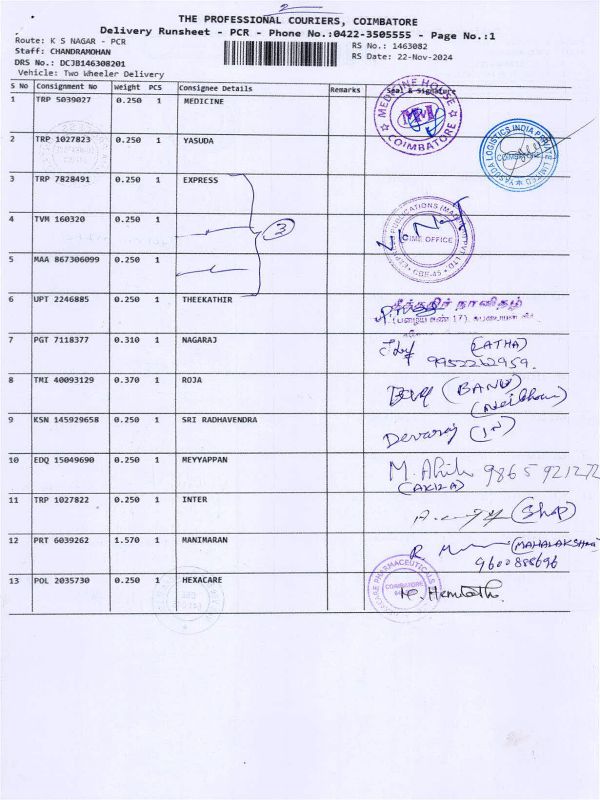 2
THE PROFESSIONAL COURIERS, COIMBATORE
Delivery Runsheet - PCR - Phone No.:0422-3505555 - Page No.:1
Route: K S NAGAR - PCR
RS No.: 1463082
Staff: CHANDRAMOHAN
RS Date: 22-Nov-2024
DRS No.: DCJB146308201
Vehicle: Two Wheeler Delivery
S No Consignment No Weight PCS Consignee Details Remarks Seal & Signature
1 TRP 5039027 0.250 1 MEDICINE
MEDICINE HOUSE COIMBATORE
2 TRP 1027823 0.250 1 YASUDA
YASUDA LOGISTICS INDIA PRIVATE LIMITED
3 TRP 7828491 0.250 1 EXPRESS
4 TVM 160320 0.250 1
3
PUBLICATIONS CIME OFFICE CBE-45
5 MAA 867306099 0.250 1
6 UPT 2246885 0.250 1 THEEKATHIR
தீக்கதிர் நாளிதழ்
7 PGT 7118377 0.310 1 NAGARAJ (ATHA)
9952212959.
8 TMI 40093129 0.370 1 ROJA (BANU)
9 KSN 145929658 0.250 1 SRI RADHAVENDRA Devaraj (IN)
10 EDQ 15049690 0.250 1 MEYYAPPAN 9865921272
(AKILA)
11 TRP 1027822 0.250 1 INTER (Shop)
12 PRT 6039262 1.570 1 MANIMARAN (MAHALAKSHMI)
9600888696
13 POL 2035730 0.250 1 HEXACARE
PHARMACEUTICALS COIMBATORE